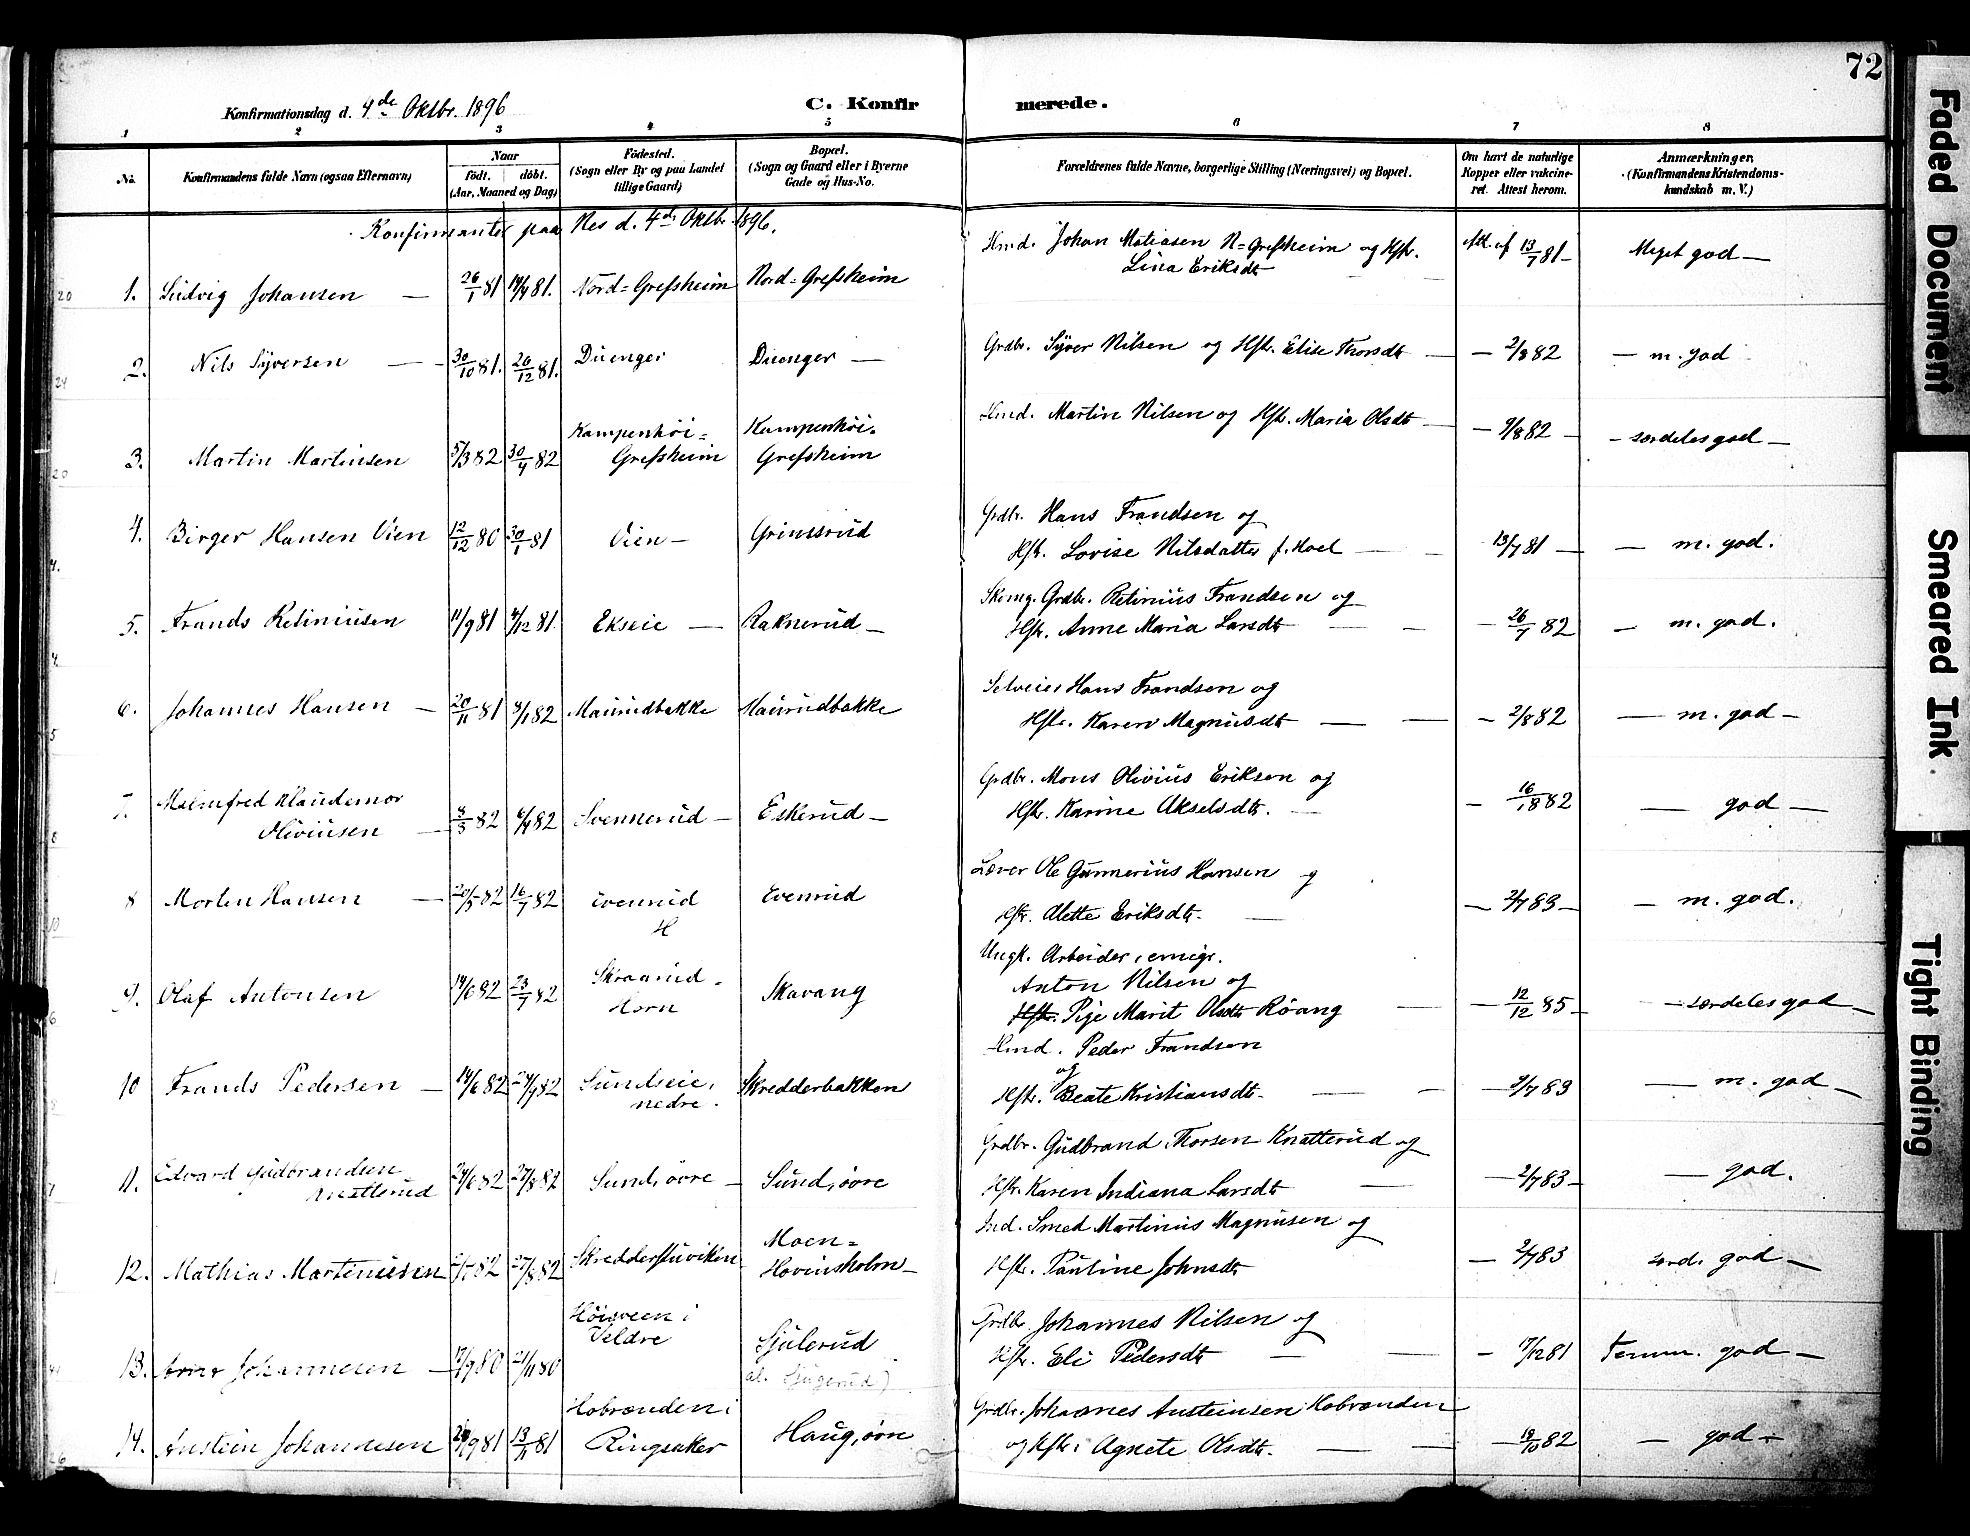 72
Konfirmationsdag d. 4de Oktbr. 1896
C. Konfirmerede.
1 2 3 4 5 6 7 8
No. Konfirmandens fulde Navn (ogsaa Efternavn) Naar født. døbt. (Aar, Maaned og Dag) Fødested. (Sogn eller By og paa Landet tillige Gaard) Bopæl. (Sogn og Gaard eller i Byerne Gade og Hus-No. Forældrenes fulde Navne, borgerlige Stilling (Næringsvei) og Bopæl. Om havt de naturlige Kopper eller vakcineret. Attest herom. Anmærkninger. (Konfirmandens Kristendomskundskab m. V.)
Konfirmanter paa Nes d. 4de Oktbr. 1896.
1. Ludvig Johansen — 26/1 81 18/4 81. Nord-Grefsheim Nord-Grefsheim Hmd. Johan Matiasen N-Grefsheim og Hstr. Lina Eriksdt — Att. af 13/7 81 — Meget god —
2. Nils Syversen — 30/10 81. 26/12 81. Duenger Duenger — Grdbr. Syver Nilsen og Hstr. Elise Thorsdt — — 2/8 82 — m. god
3. Martin Martinsen 5/3 82 30/4 82 Kampenhöi-Grefsheim Kampenhöi-Grefsheim Hmd. Martin Nilsen og Hstr. Maria Olsdt — — 9/8 82 — — særdeles god —
4. Birger Hansen Vien 12/12 80 30/1 81 Vien — Grinsrud Grdbr. Hans Frandsen og
Hstr. Lovise Nilsdatter f. Hoel — 13/7 81 — — m. god.
5. Frands Retiniusen 11/9 81 4/12 81. Ekseie — Raknerud — Skomg. Grdbr. Retinius Frandsen og
Hstr. Anne Maria Larsdt — — 26/7 82 — m. god.
6. Johannes Hansen — 20/11 81 8/1 82 Maurudbakke Maurudbakke Selveier Hans Frandsen og
Hstr. Karen Magnusdt — — — 2/8 82 — m. god —
7. Malmfred Klaudemor
Oliviusen — 3/3 82 6/4 82 Svennerud — Eskerud — Grdbr. Mons Olivius Eriksen og
Hstr. Karine Akselsdtr. — — 16/8 82 — god —
8 Morten Hansen — 20/5 82 16/7 82 Evenrud
H Evenrud Læver Ole Gunnerius Hansen og
Hstr. Olette Eriksdtr. — — 2/7 83 — — m. god.
9. Olaf Antonsen 14/6 82 23/7 82 Skraarud-
Horn Skavang Ungk. Arbeider, emigr.
Anton Nilsen og
Hstr. Pige Marit Olsdtr Röang — — 12/12 85 — — særdeles god —
10 Frands Pedersen — 14/6 82 24/9 82 Sundseie,
nedre. Skredderbakken Hmd. Peder Frandsen
og
Hstr. Beate Kristiansdtr. — — — 2/7 83 — m. god —
11. Edvard Gudbrandsen
Knatterud 24/6 82 27/8 82 Sund, övre — Sund, övre Grdbr. Gudbrand Thorsen Knatterud og
Hstr. Karen Indiana Larsdtr — — 2/7 83 — — god.
12. Mathias Martiniusen 2/7 82 27/8 82 Skredderstuviken Moen-
Hovinsholm — Ind. Smed Martinius Magnusen og
Hstr. Pauline Johnsdtr — 2/7 83 særd. god —
13. Arne Johannesen — 17/9 80 21/11 80 Höisveen i
Veldre Sjulerud
al. Sjugerud) Grdbr. Johannes Nilsen og
Hstr. Eli Pedersdtr — — — 17/12 81 Temm. god —
14. Austein Johannesen 26/9 81 13/11 81 Hobrænden i
Ringsaker Haug, övre Grdbr. Johannes Austeinsen Hobrænden
og Hstr. Agnete Olsdtr. — — — 19/10 82 — god —
Faded Document
Smeared Ink
Tight Binding